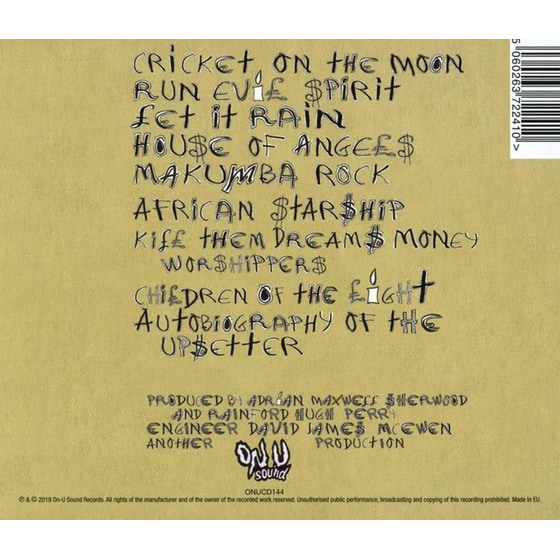 CRICKET ON THE MOON
RUN EVI£ $PIRIT
£ET IT RAIN
HOU$E OF ANGE£$
MAKUMBA ROCK
AFRICAN $TAR$HIP
KI££ THEM DREAM$ MONEY
WOR$HIPPER$
CHI£DREN OF THE £IGHT
AUTOBIOGRAPHY OF THE
UP$ETTER
PRODUCED BY ADRIAN MAXWE££ $HERWOOD
AND RAINFORD HUGH PERRY
ENGINEER DAVID JAME$ MCEWEN
ANOTHER ON U SOUND PRODUCTION
ONUCD144
℗ & © 2019 On-U Sound Records. All rights of the manufacturer and of the owner of the recorded work reserved. Unauthorised public performance, broadcasting and copying of this recording prohibited. Made in EU.
5 060263 722410 >